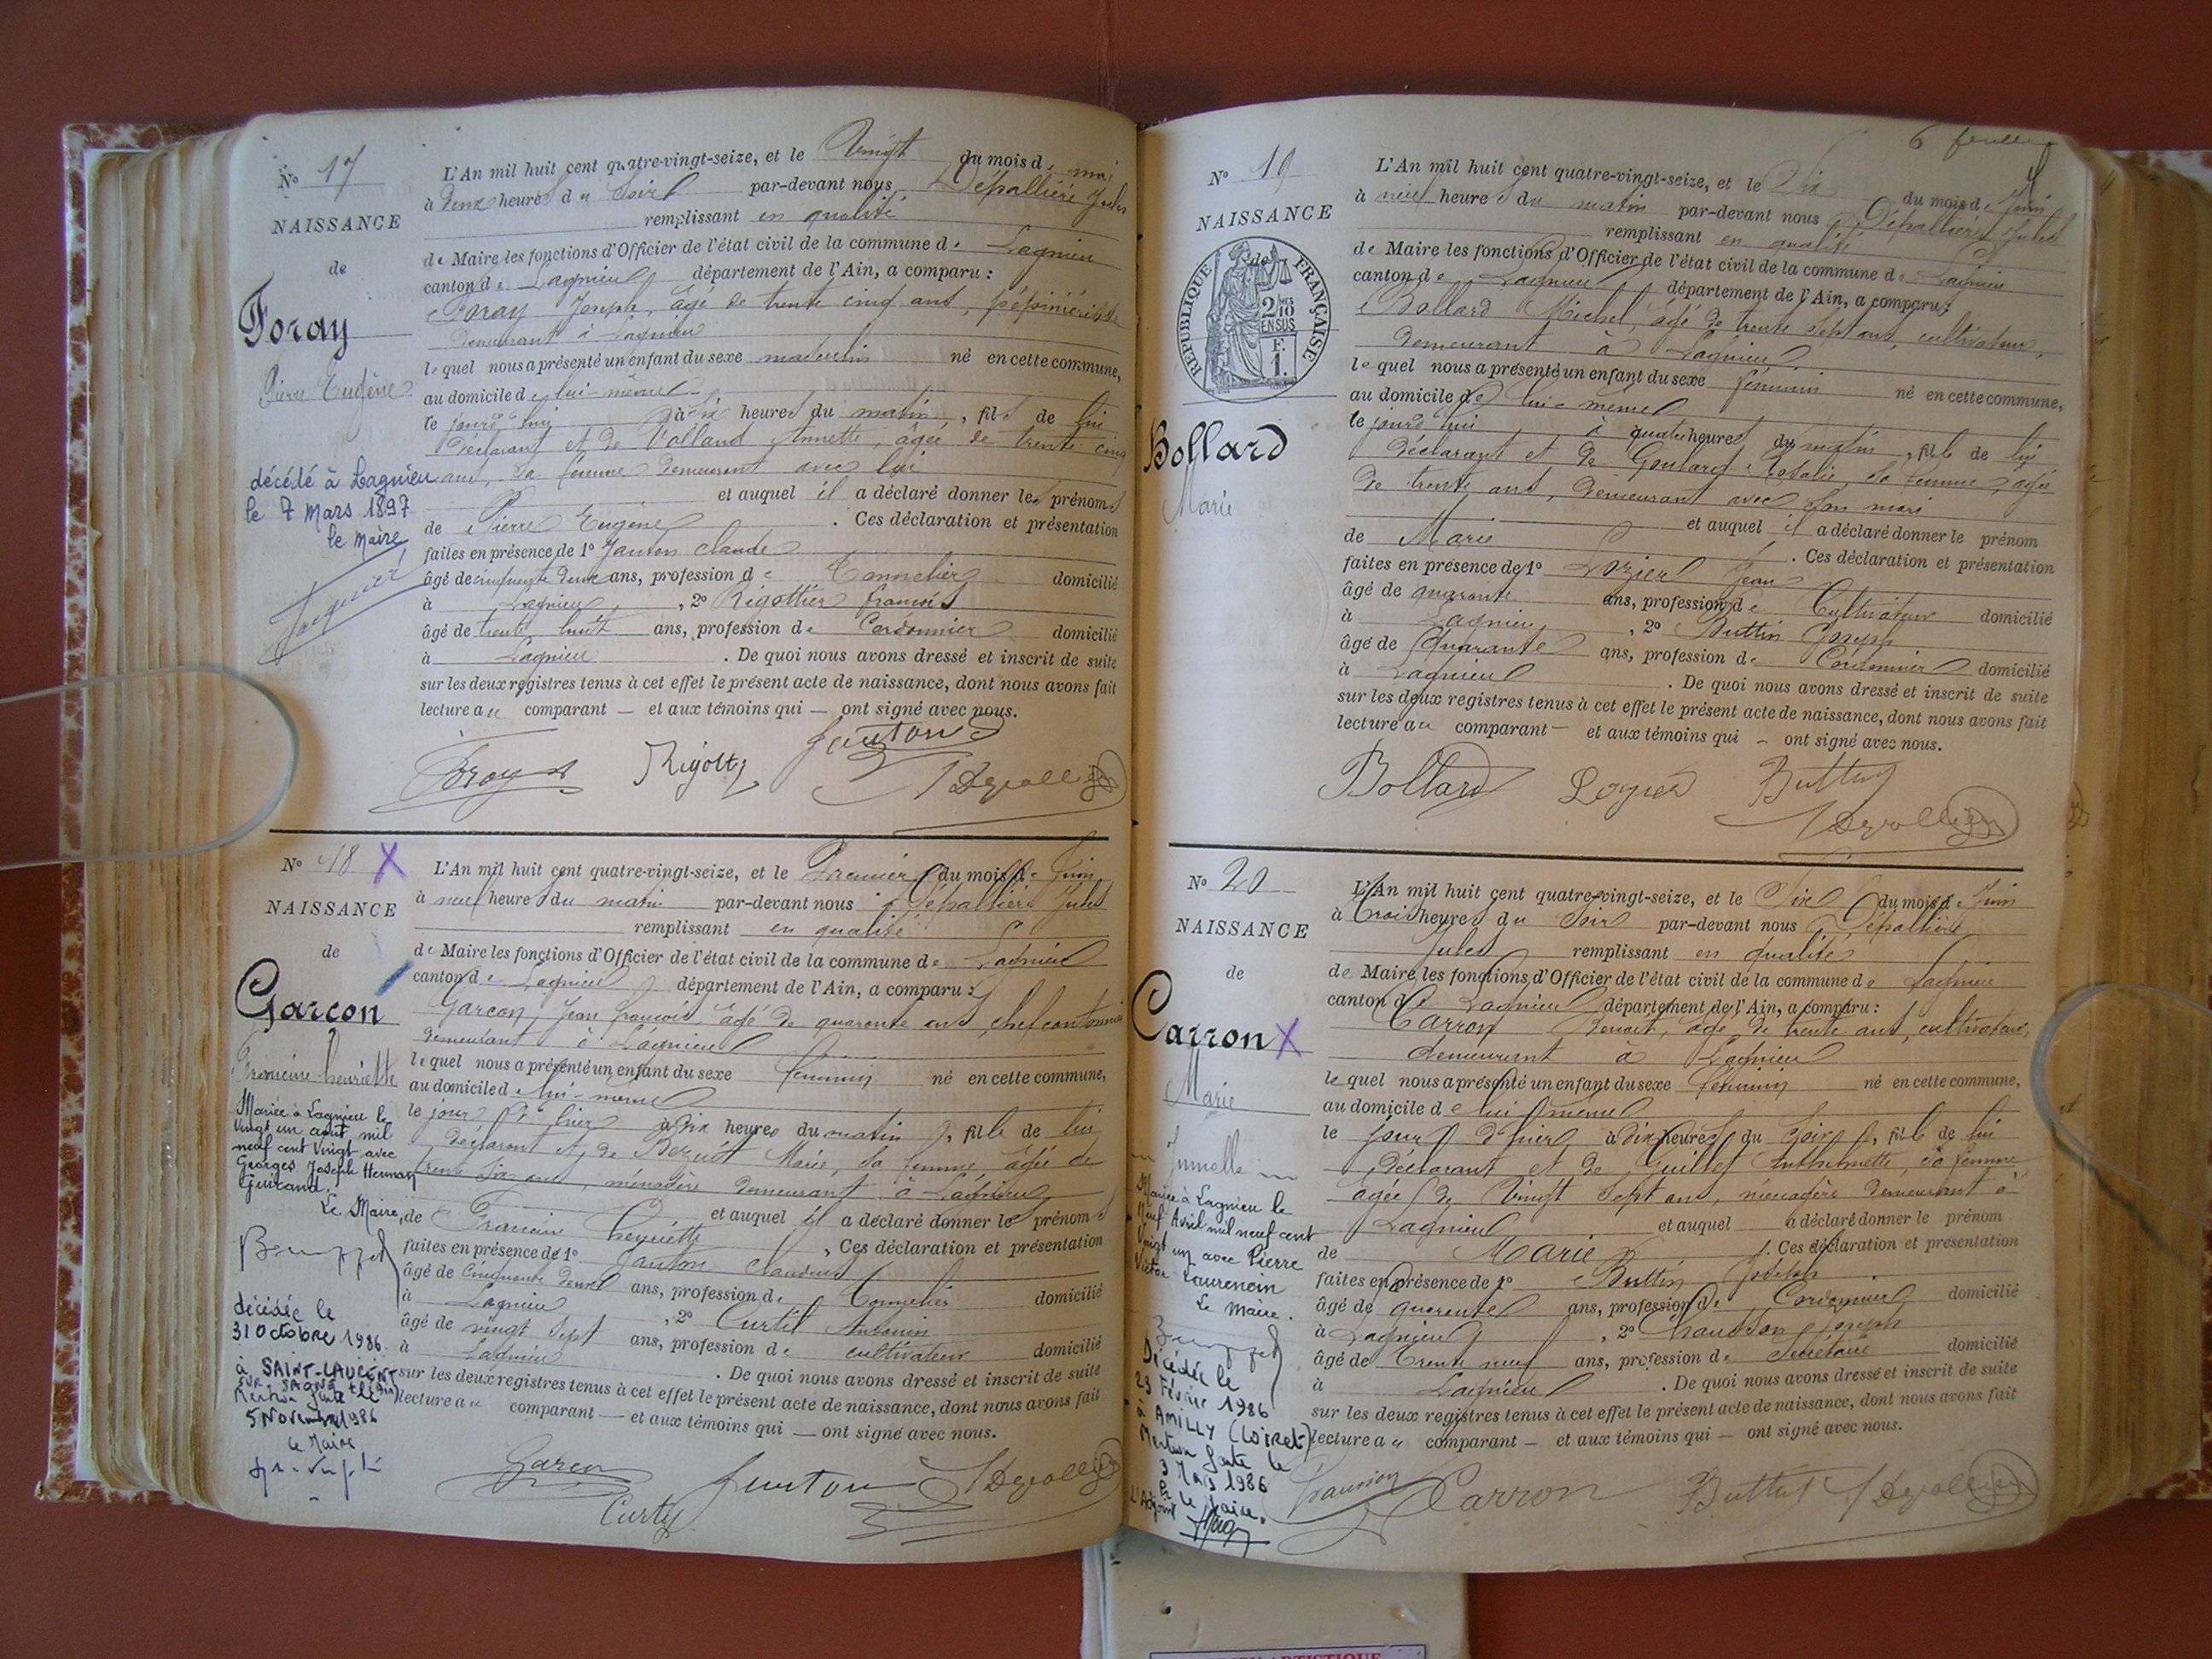 N° 17
NAISSANCE
de
Foray
Pierre Eugène
décédé à Lagnieu
le 7 Mars 1897
le Maire,
L'An mil huit cent quatre-vingt-seize, et le Vingt du mois de mai
à deux heures du Soir par-devant nous, Dépallière Jules
remplissant en qualité
de Maire les fonctions d'Officier de l'état civil de la commune de Lagnieu
canton de Lagnieu département de l'Ain, a comparu :
Foray Joseph, âgé de trente cinq ans, pépiniériste
demeurant à Lagnieu
lequel nous a présenté un enfant du sexe masculin né en cette commune,
au domicile de lui-même
le jourd'hui à six heures du matin, fils de lui
déclarant et de Volland Annette, âgée de trente cinq
ans, sa femme demeurant avec lui
et auquel il a déclaré donner les prénoms
de Pierre Eugène . Ces déclaration et présentation
faites en présence de 1° Janton Claude
âgé de cinquante deux ans, profession de Tonnelier domicilié
à Lagnieu, 2° Rigottier françois
âgé de trente huit ans, profession de Cordonnier domicilié
à Lagnieu . De quoi nous avons dressé et inscrit de suite
sur les deux registres tenus à cet effet le présent acte de naissance, dont nous avons fait
lecture au comparant — et aux témoins qui — ont signé avec nous.
Foray Janton
N° 18 X
NAISSANCE
de
Garcon
Francine henriette
Mariée à Lagnieu le
Vingt un août mil
neuf cent Vingt avec
Georges Joseph Herman
Guirand.
Le Maire,
décédée le
31 Octobre 1986
à SAINT-LAURENT
SUR-SAONE
Mention faite le
5 Novembre 1986
le Maire
L'An mil huit cent quatre-vingt-seize, et le Premier du mois de Juin
à neuf heures du matin par-devant nous Dépallière Jules
remplissant en qualité
de Maire les fonctions d'Officier de l'état civil de la commune de Lagnieu
canton de Lagnieu département de l'Ain, a comparu :
Garcon, Jean françois âgé de quarante ans, chef cantonnier
demeurant à Lagnieu
lequel nous a présenté un enfant du sexe féminin né en cette commune,
au domicile de lui-même
le jour d'hier à dix heures du matin, fille de lui
déclarant et de Marie, sa femme, âgée de
trente six ans, ménagère demeurant à Lagnieu
et auquel il a déclaré donner les prénoms
de Francine henriette . Ces déclaration et présentation
faites en présence de 1° Janton Claudius
âgé de Cinquante deux ans, profession de Tonnelier domicilié
à Lagnieu, 2° Curtil Antonin
âgé de vingt sept ans, profession de cultivateur domicilié
à Lagnieu . De quoi nous avons dressé et inscrit de suite
sur les deux registres tenus à cet effet le présent acte de naissance, dont nous avons fait
lecture au comparant — et aux témoins qui — ont signé avec nous.
Garcon Janton
6
N° 19
NAISSANCE
de
RÉPUBLIQUE FRANÇAISE
2/10
EN SUS
F.
1.
Bollard
Marie
L'An mil huit cent quatre-vingt-seize, et le Six du mois de Juin
à neuf heures du matin par-devant nous Dépallière Jules
remplissant en qualité
de Maire les fonctions d'Officier de l'état civil de la commune de Lagnieu
canton de Lagnieu département de l'Ain, a comparu :
Bollard Michel, âgé de trente sept ans, cultivateur,
demeurant à Lagnieu
lequel nous a présenté un enfant du sexe féminin né en cette commune,
au domicile de lui-même
le jourd'hui à quatre heures du matin, fille de lui
déclarant et de Goulard Rosalie, sa femme, âgée
de trente ans, demeurant avec son mari
et auquel il a déclaré donner le prénom
de Marie . Ces déclaration et présentation
faites en présence de 1° Lozier Jean
âgé de quarante ans, profession de Cultivateur domicilié
à Lagnieu, 2° Buttin Joseph
âgé de Quarante ans, profession de Cordonnier domicilié
à Lagnieu . De quoi nous avons dressé et inscrit de suite
sur les deux registres tenus à cet effet le présent acte de naissance, dont nous avons fait
lecture au comparant — et aux témoins qui — ont signé avec nous.
Bollard Buttin
N° 20
NAISSANCE
de
Carron X
Marie
Jumelle
Mariée à Lagnieu le
Neuf Avril mil neuf cent
Vingt un avec Pierre
Victor Laurencin
Le Maire.
Décédée le
23 Février 1986
à
AMILLY (Loiret)
Mention faite le
3 Mars 1986
Pr le Maire,
L'Adjoint
L'An mil huit cent quatre-vingt-seize, et le Six du mois de Juin
à Trois heures du Soir par-devant nous Dépallière
Jules remplissant en qualité
de Maire les fonctions d'Officier de l'état civil de la commune de Lagnieu
canton de Lagnieu département de l'Ain, a comparu :
Carron Benoit, âgé de trente ans, cultivateur,
demeurant à Lagnieu
lequel nous a présenté un enfant du sexe féminin né en cette commune,
au domicile de lui même
le jour d'hier à dix heures du Soir, fille de lui
déclarant et de Guillet Anthelmette, sa femme
agée de Vingt sept ans, ménagère demeurant à
Lagnieu et auquel a déclaré donner le prénom
de Marie . Ces déclaration et présentation
faites en présence de 1° Buttin Joseph
âgé de quarante ans, profession de Cordonnier domicilié
à Lagnieu, 2° Chausson Joseph
âgé de Trente neuf ans, profession de Secrétaire domicilié
à Lagnieu . De quoi nous avons dressé et inscrit de suite
sur les deux registres tenus à cet effet le présent acte de naissance, dont nous avons fait
lecture au comparant — et aux témoins qui — ont signé avec nous.
Chausson Carron Buttin